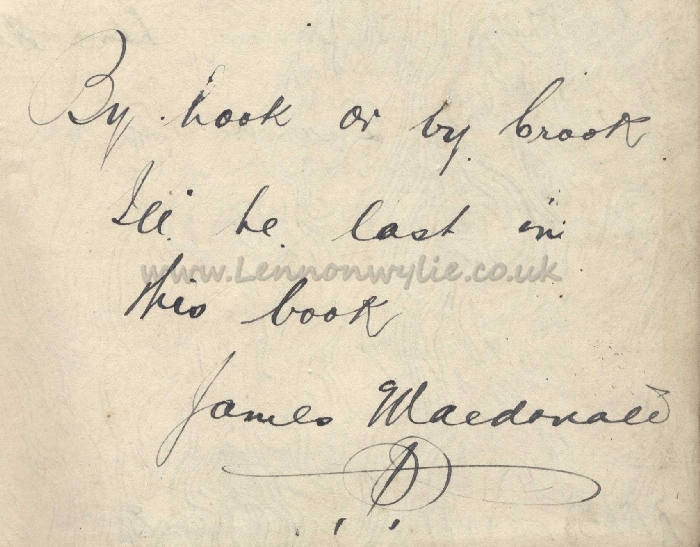 By hook or by crook
I'll be last in
www.Lennonwylie.co.uk
this book
James Macdonald